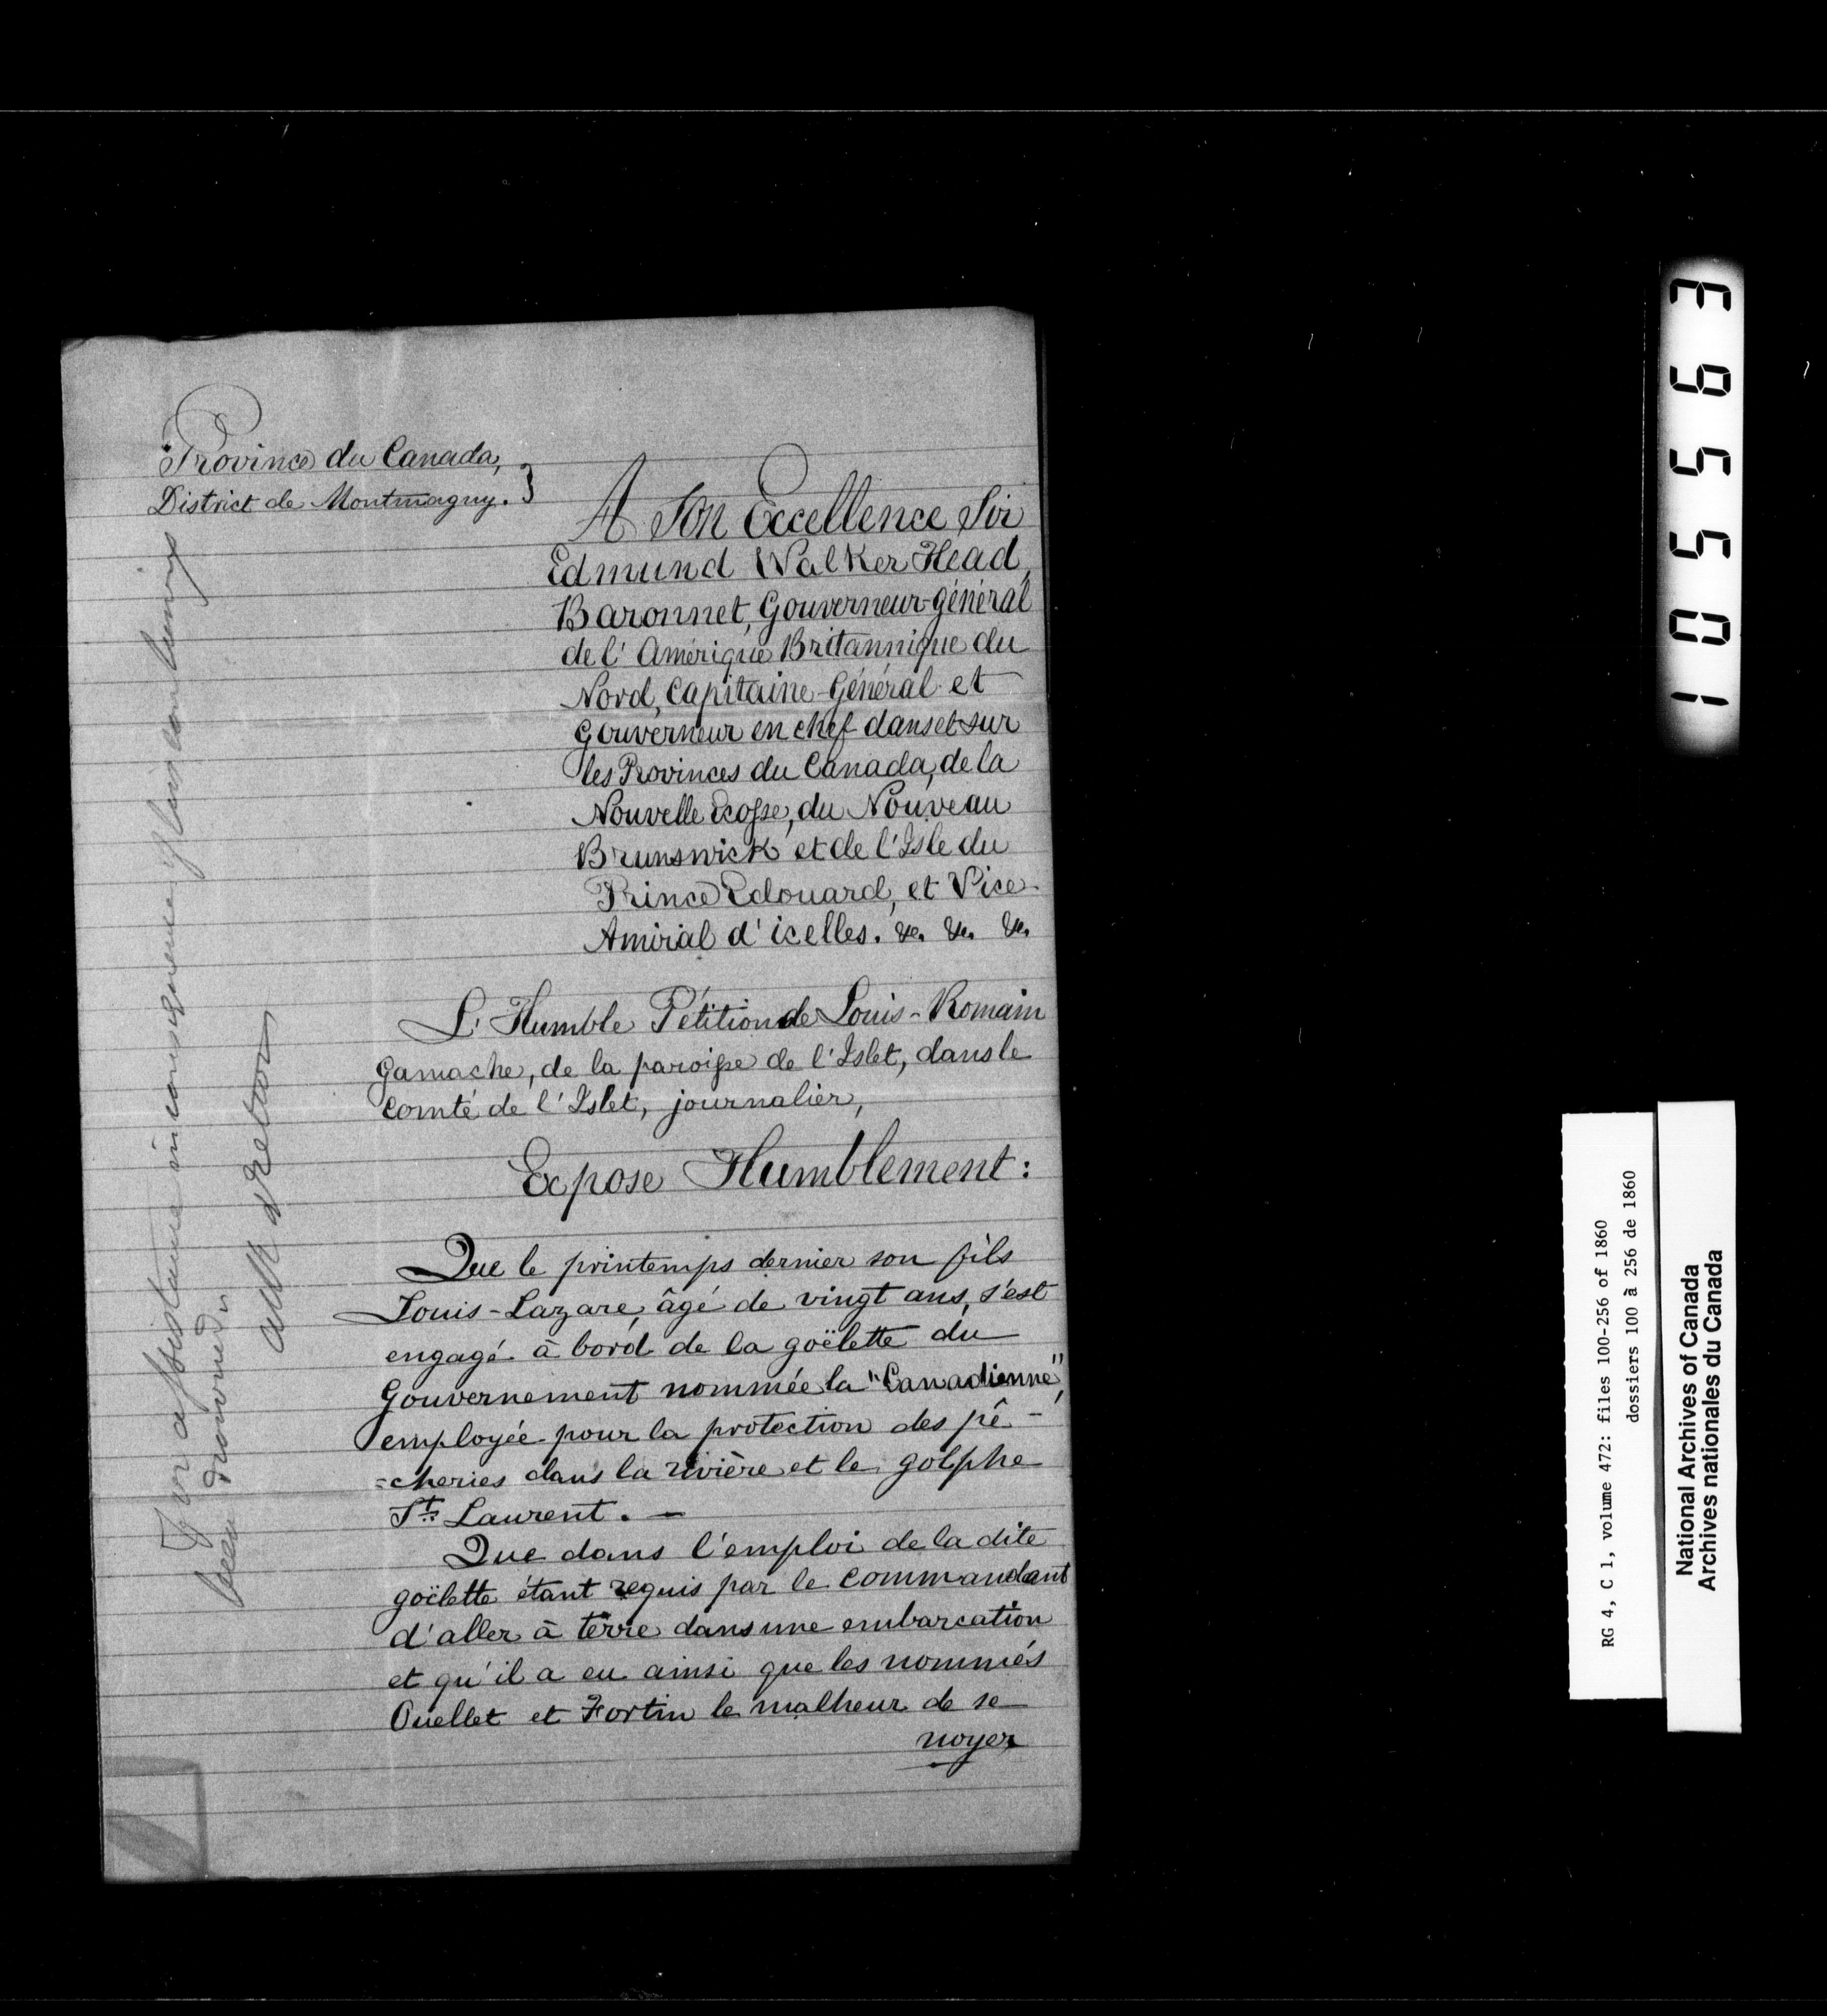 Province du Canada,
District de Montmagny. }
A Son Excellence Sir
Edmund Walker Head,
Baronnet, Gouverneur-général
de l'Amérique Britannique du
Nord, Capitaine-Général et
Gouverneur en chef dans et sur
les Provinces du Canada, de la
Nouvelle Ecosse, du Nouveau
Brunswick et de l'Isle du
Prince Edouard, et Vice-
Amiral d'icelles. &c. &c. &c.
L'Humble Pétition de Louis-Romain
Gamache, de la paroisse de l'Islet, dans le
Comté de l'Islet, journalier,
Expose Humblement:
Que le printemps dernier son fils
Louis-Lazare, âgé de vingt ans, s'est
engagé à bord de la goëlette du
Gouvernement nommée la "Canadienne",
employée pour la protection des pê-
=cheries dans la rivière et le golphe
St. Laurent. —
Que dans l'emploi de la dite
goëlette étant requis par le Commandant
d'aller à terre dans une embarcation
et qu'il a eu ainsi que les nommés
Ouellet et Fortin le malheur de se
noyer
For assistance in consequence of his son having
been drowned
ask
105563
RG 4, C 1, volume 472: files 100-256 of 1860
dossiers 100 à 256 de 1860
National Archives of Canada
Archives nationales du Canada